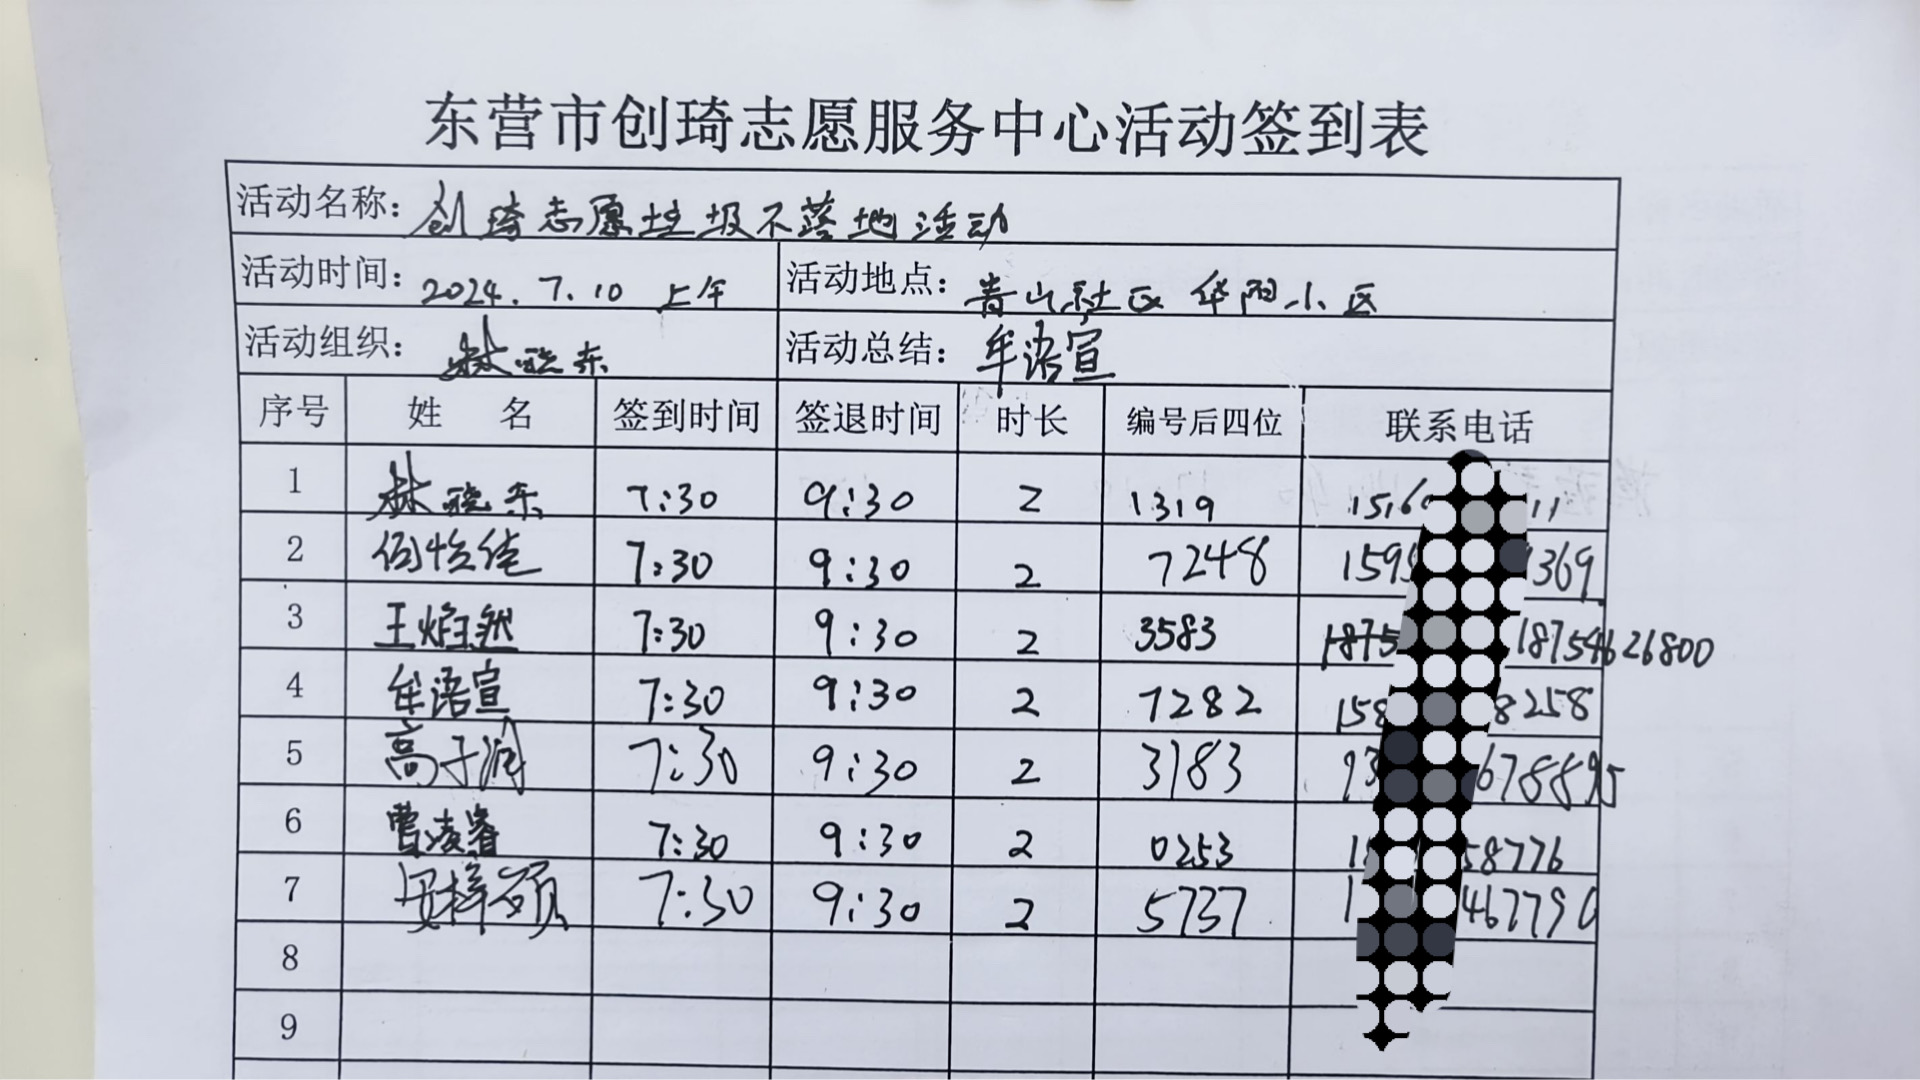 东营市创琦志愿服务中心活动签到表
活动名称：创琦志愿垃圾不落地活动
活动时间：2024.7.10 上午 活动地点：青山社区 华阳小区
活动组织：林晓东 活动总结：牟语宣
序号 姓 名 签到时间 签退时间 时长 编号后四位 联系电话
1 林晓东 7:30 9:30 2 1319
2 7:30 9:30 2 7248 1369
3 王焰然 7:30 9:30 2 3583 18754626800
4 牟语宣 7:30 9:30 2 7282 158 8258
5 高子涧 7:30 9:30 2 3183 678895
6 曹凌睿 7:30 9:30 2 0253 58776
7 梓硕 7:30 9:30 2 5737 467790
8
9